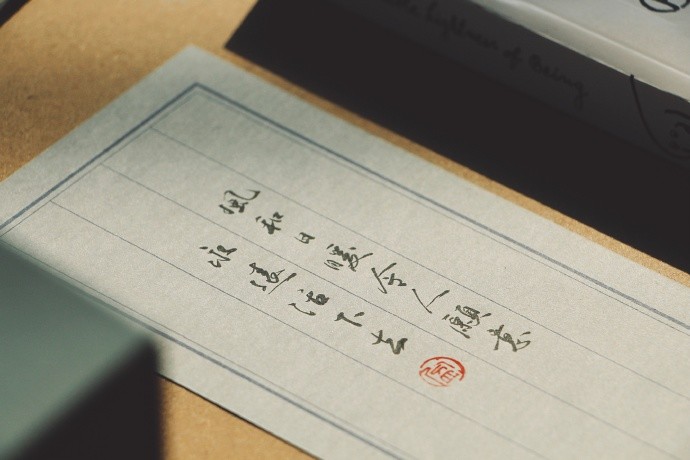 Lightness of Being
風和日暖令人願意
永遠活下去